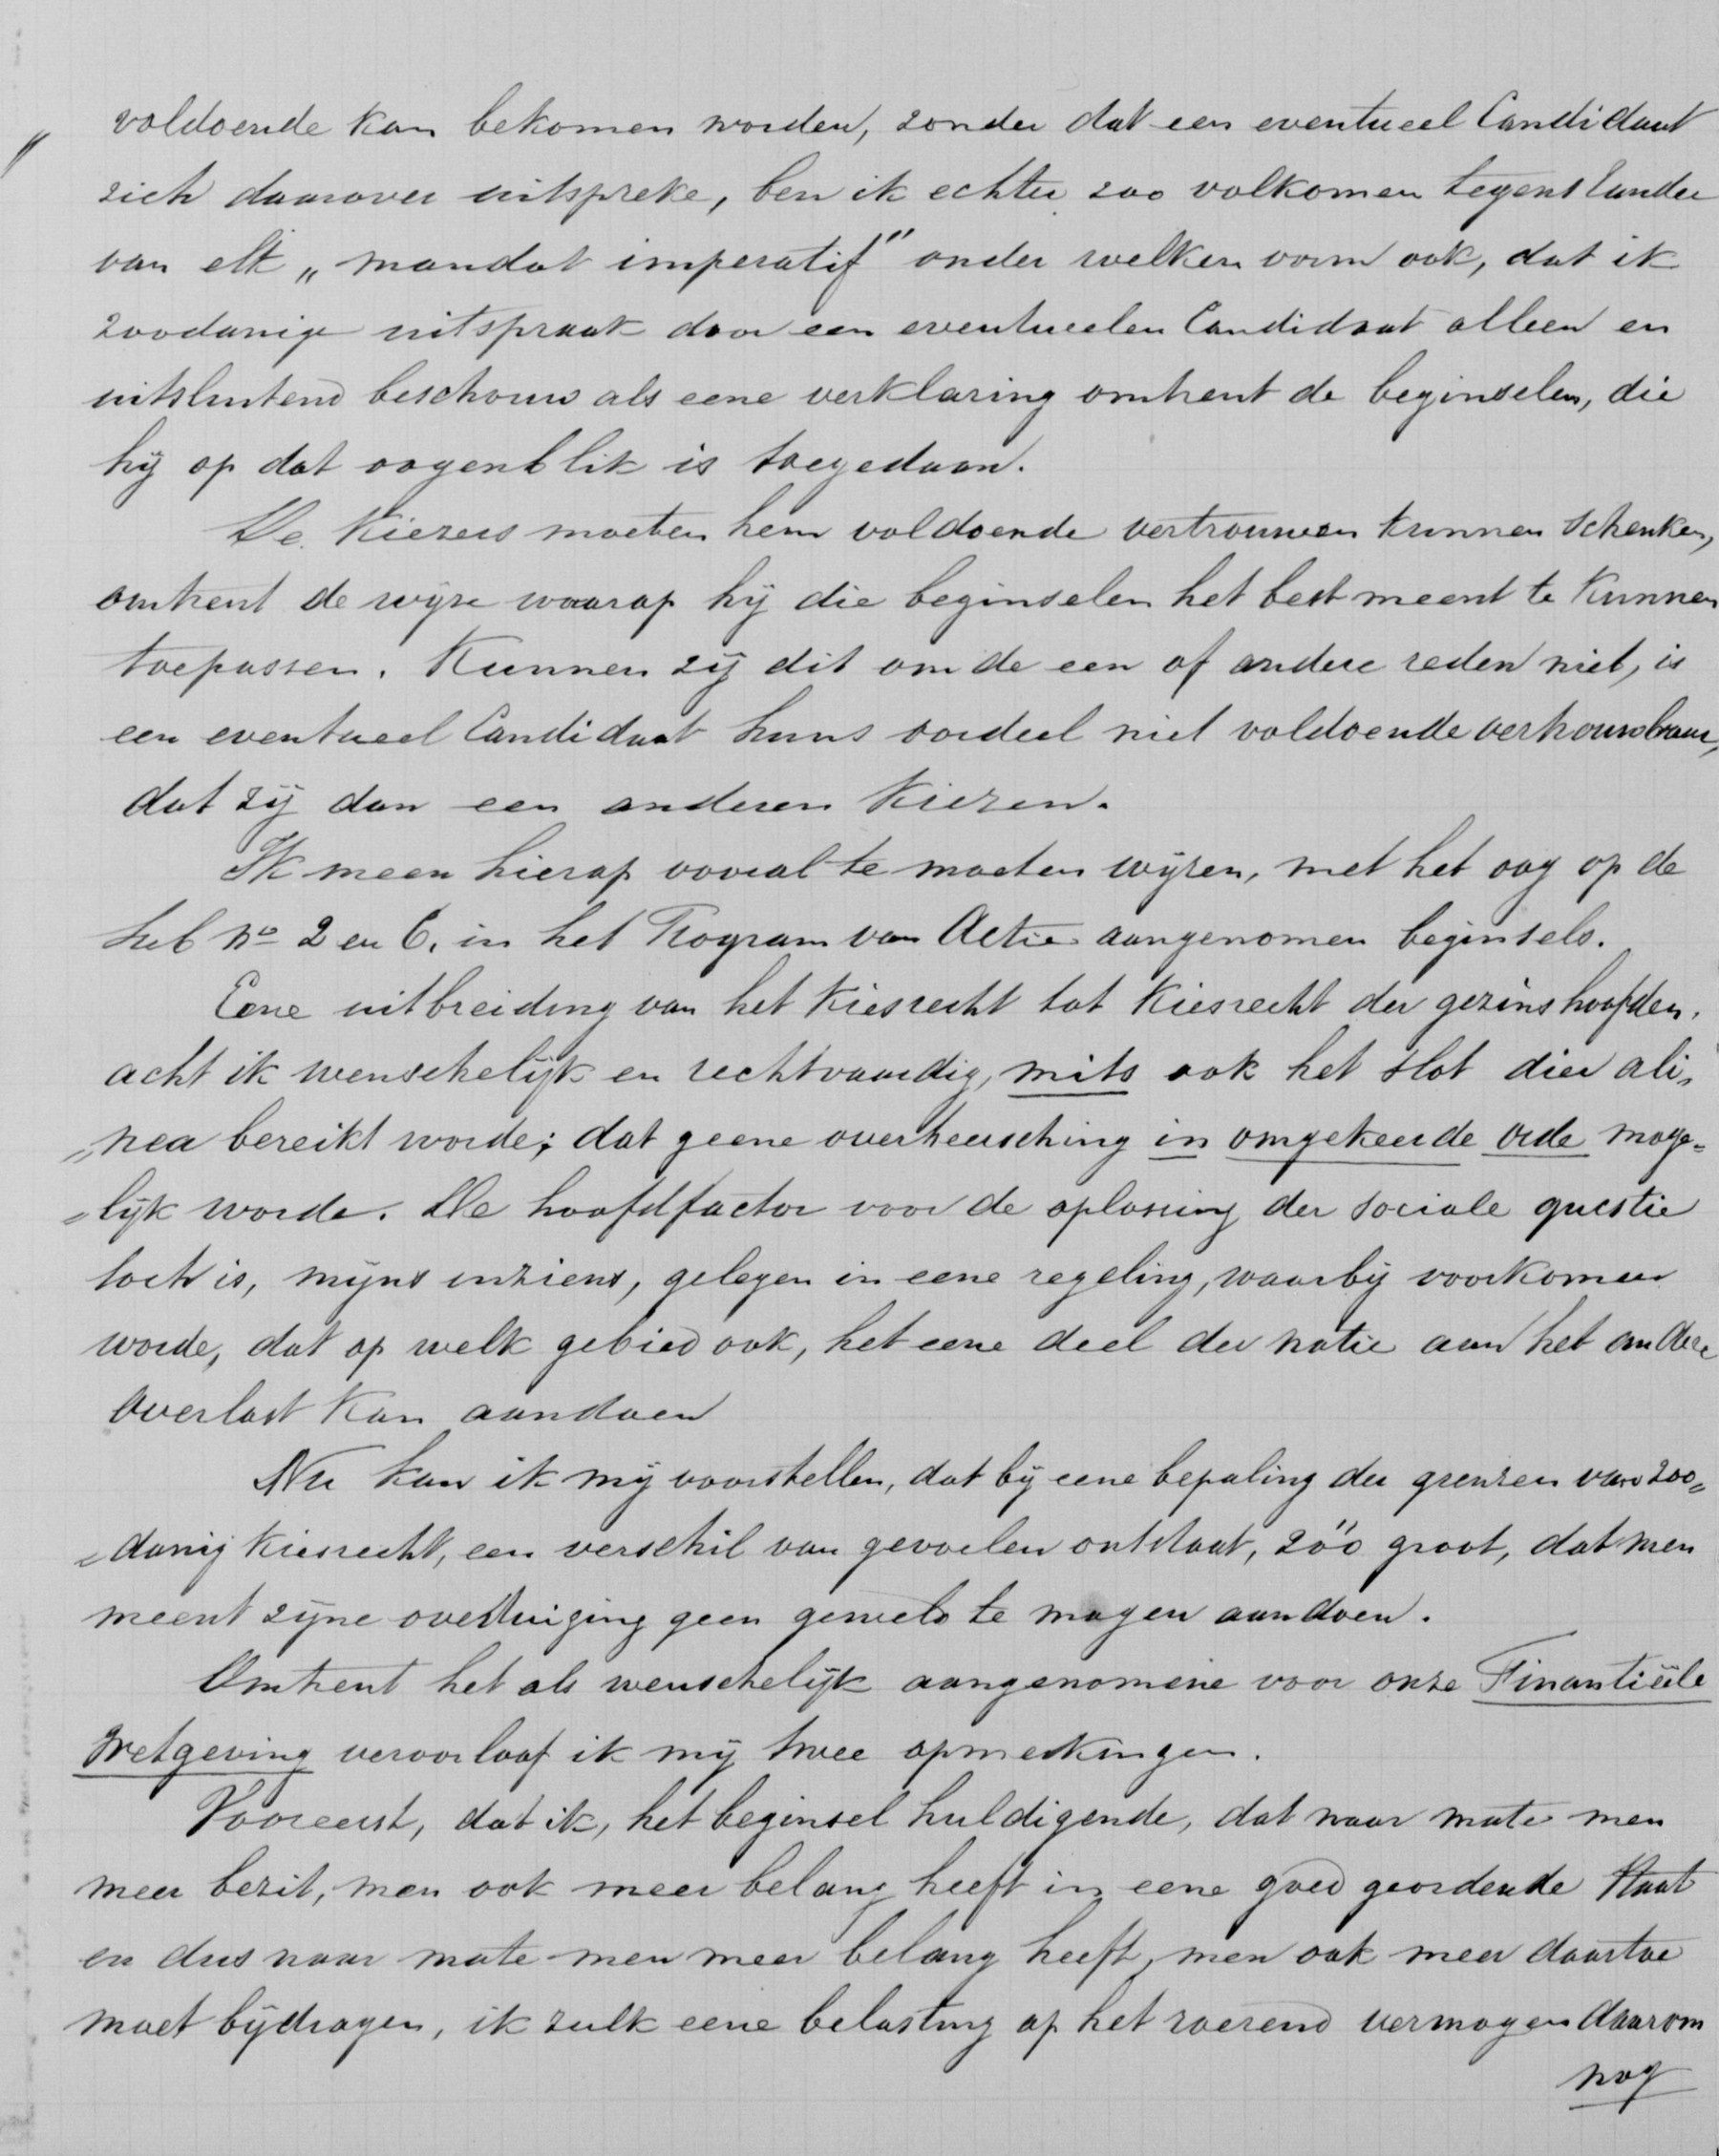 voldoende kan bekomen worden, zonder dat een eventueel Candidaat
zich daarover uitspreke, ben ik echter zoo volkomen tegenstander
van elk „mandat imperatif" onder welken vorm ook, dat ik
zoodanige uitspraak door een eventueelen Candidaat alleen en
uitsluitend beschouw als eene verklaring omtrent de beginselen, die
hij op dat oogenblik is toegedaan.
De Kiezers moeten hem voldoende vertrouwen kunnen schenken,
omtrent de wijze waarop hij die beginselen het best meent te kunnen
toepassen. Kunnen zij dit om de een of andere reden niet, is
een eventueel Candidaat huns oordeel niet voldoende vertrouwbaar,
dat zij dan een anderen kiezen.
Ik meen hierop vooral te moeten wijzen, met het oog op de
sub No 2 en 6. in het Program van Actie aangenomen beginsels.
Eene uitbreiding van het kiesrecht tot kiesrecht der gezinshoofden,
acht ik wenschelijk en rechtvaardig, mits ook het slot dier ali„
„nea bereikt worde; dat geene overheersching in omgekeerde orde moge=
=lijk worde. De hoofdfactor voor de oplossing der sociale questie
toch is, mijns inziens, gelegen in eene regeling, waarbij voorkomen
worde, dat op welk gebied ook, het eene deel der natie aan het andere
overlast kan aandoen
Nu kan ik mij voorstellen, dat bij eene bepaling der grenzen van zoo=
=danig kiesrecht, een verschil van gevoelen ontstaat, zóó groot, dat men
meent zijne overtuiging geen geweld te mogen aandoen.
Omtrent het als wenschelijk aangenomene voor onze Finantiëele
wetgeving veroorloof ik mij twee opmerkingen.
Vooreerst, dat ik, het beginsel huldigende, dat naar mate men
meer bezit, men ook meer belang heeft in eene goed geordende Staat
en dus naar mate men meer belang heeft, men ook meer daartoe
moet bijdragen, ik zulk eene belasting op het roerend vermogen daarom
nog